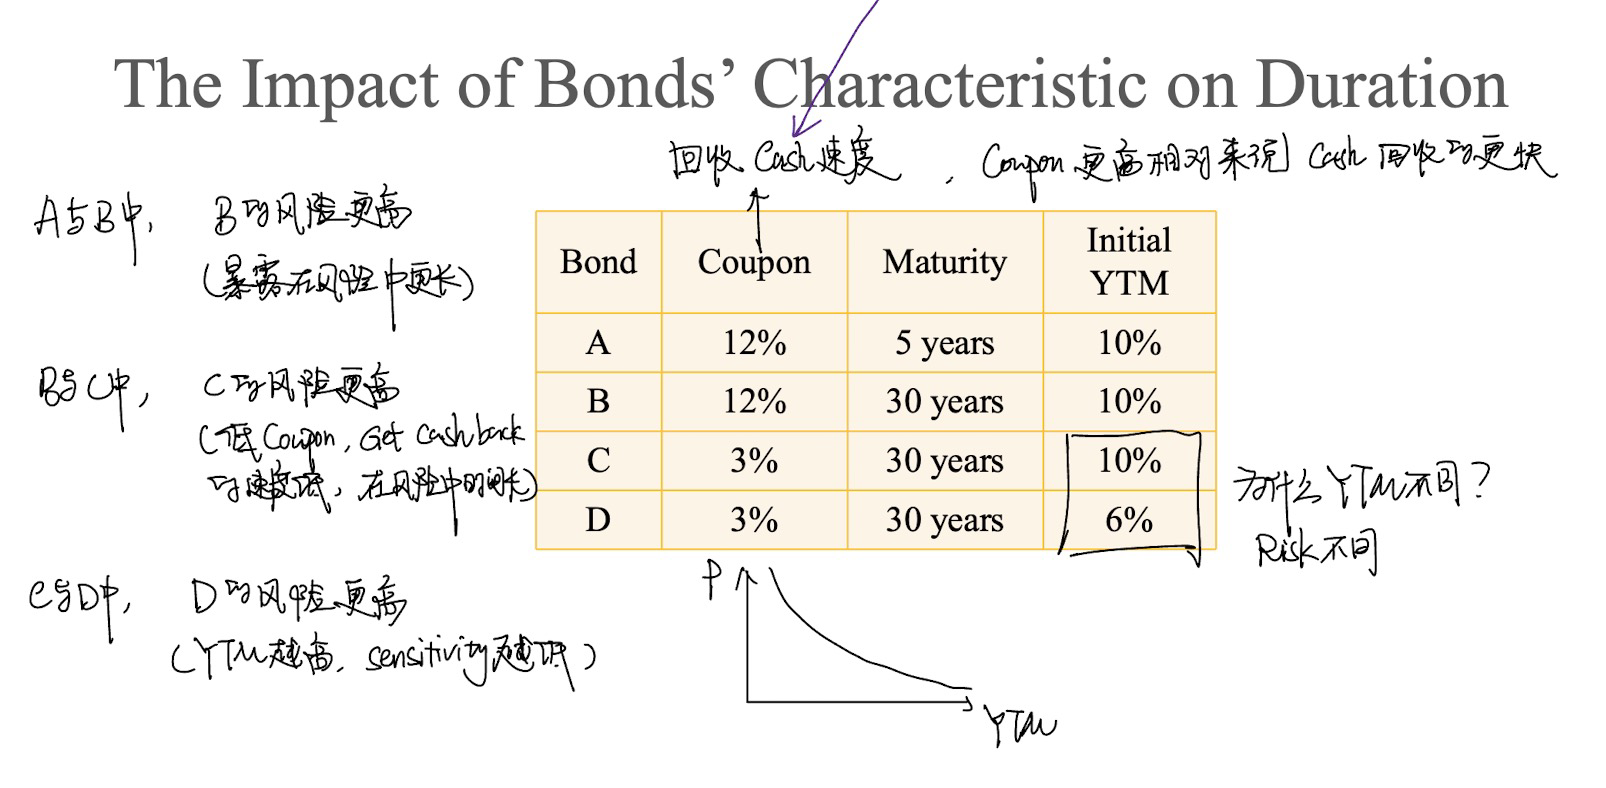 The Impact of Bonds’ Characteristic on Duration
回收 Cash 速度 , Coupon 更高相对来说 Cash 回收的更快
A与B中, B的风险更高
(暴露在风险中更长)
B与C中, C的风险更高
(低 Coupon, Get cash back
的速度低, 在风险中时间长)
C与D中, D的风险更高
(YTM越高, sensitivity越低)
Bond Coupon Maturity Initial YTM
A 12% 5 years 10%
B 12% 30 years 10%
C 3% 30 years 10%
D 3% 30 years 6%
为什么YTM不同?
Risk不同
P
YTM